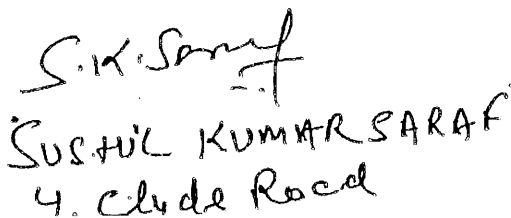 S.K. Saraf
SUSHIL KUMAR SARAF
4. Clyde Road